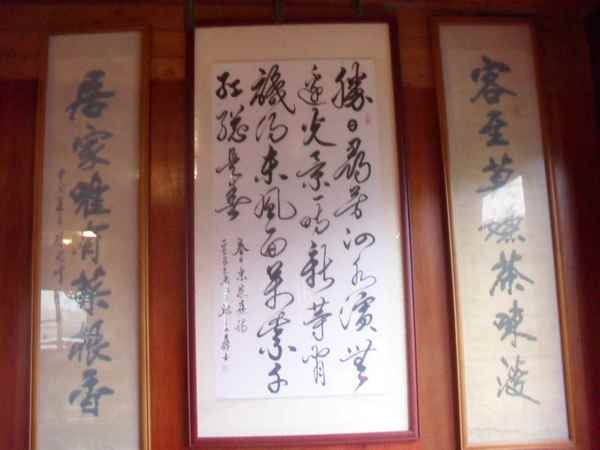 客至莫嫌茶味淡
勝日尋芳泗水濱無
邊光景一時新等閒
識得東風面萬紫千
紅總是春
春日宋朱熹詩
居家惟有菜根香